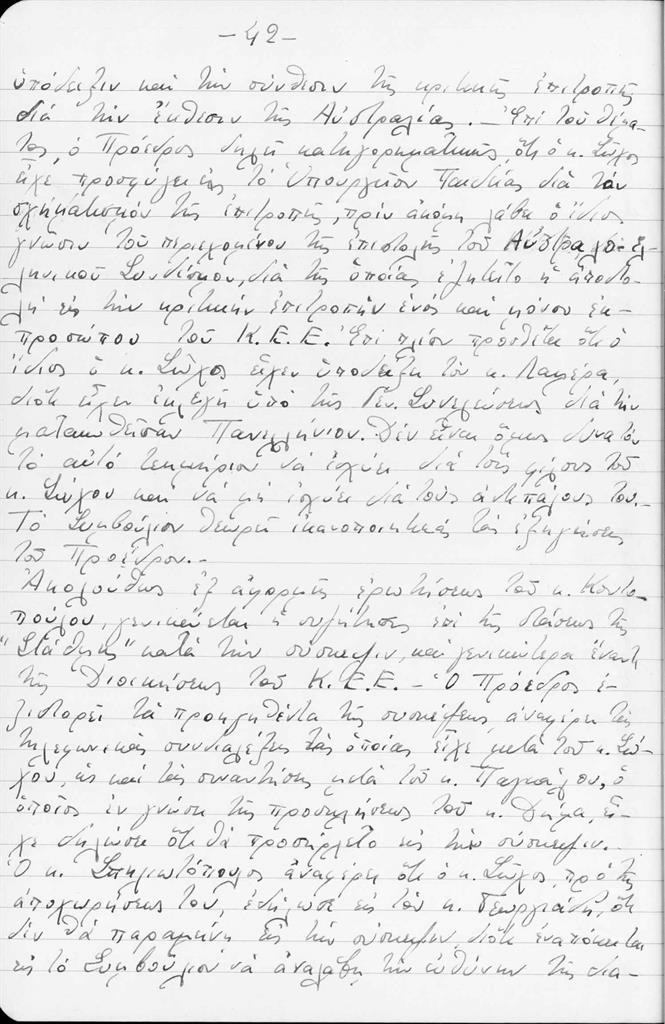 -42-
ὑπόδειξιν καὶ τὴν σύνθεσιν τῆς κριτικῆς ἐπιτροπῆς
διὰ τὴν ἔκθεσιν τῆς Αὐστραλίας.- Ἐπὶ τοῦ θέμα-
τος, ὁ Πρόεδρος δηλοῖ κατηγορηματικῶς, ὅτι ὁ κ. Σῶχος
εἶχε προσφύγει εἰς τὸ Ὑπουργεῖον Παιδείας διὰ τὸν
σχηματισμὸν τῆς ἐπιτροπῆς, πρὶν ἀκόμη λάβῃ ὁ ἴδιος
γνῶσιν τοῦ περιεχομένου τῆς ἐπιστολῆς τοῦ Αὐστραλο-ελ-
ληνικοῦ Συνδέσμου, διὰ τῆς ὁποίας ἐζητεῖτο ἡ ἀποστο-
λὴ εἰς τὴν κριτικὴν ἐπιτροπὴν ἑνὸς καὶ μόνου ἐκ-
προσώπου τοῦ Κ.Ε.Ε. Ἐπὶ πλέον προσθέτει ὅτι ὁ
ἴδιος ὁ κ. Σῶχος εἶχεν ὑποδείξη τὸν κ. Λαμέρα,
διότι εἶχεν ἐκλεγῆ ὑπὸ τῆς Γεν. Συνελεύσεως διὰ τὴν
ματαιωθεῖσαν Πανελλήνιον. Δὲν εἶναι ὅμως δυνατὸν
τὸ αὐτὸ τεκμήριον νὰ ἰσχύει διὰ τοὺς φίλους τοῦ
κ. Σώχου καὶ νὰ μὴ ἰσχύει διὰ τοὺς ἀντιπάλους του.-
Τὸ Συμβούλιον θεωρεῖ ἱκανοποιητικὰς τὰς ἐξηγήσεις
τοῦ Προέδρου.-
Ἀκολούθως ἐξ ἀφορμῆς ἐρωτήσεως τοῦ κ. Κοντο-
πούλου, γενικεύεται ἡ συζήτησις ἐπὶ τῆς στάσεως τῆς
"Στάθμης" κατὰ τὴν σύσκεψιν, καὶ γενικώτερα ἔναντι
τῆς Διοικήσεως τοῦ Κ.Ε.Ε.- Ὁ Πρόεδρος ἐ-
ξιστορεῖ τὰ προηγηθέντα τῆς συσκέψεως, ἀναφέρει τὰς
τηλεφωνικὰς συνδιαλέξεις τὰς ὁποίας εἶχε μετὰ τοῦ κ. Σώ-
χου, ὡς καὶ τὰς συναντήσεις μετὰ τοῦ κ. Παγκάλου, ὁ
ὁποῖος ἐν γνώσει τῆς προσκλήσεως τοῦ κ. Δήμα, εἶ-
χε δηλώσει ὅτι θὰ προσήρχετο εἰς τὴν σύσκεψιν.-
Ὁ κ. Σπηλιωτόπουλος ἀναφέρει ὅτι ὁ κ. Σῶχος, πρὸ τῆς
ἀποχωρήσεώς του, ἐδήλωσε εἰς τὸν κ. Γεωργιάδη, ὅτι
δὲν θὰ παραμείνη εἰς τὴν σύσκεψιν, διότι ἐναπόκειται
εἰς τὸ Συμβούλιον νὰ ἀναλάβῃ τὴν εὐθύνην τῆς δια-